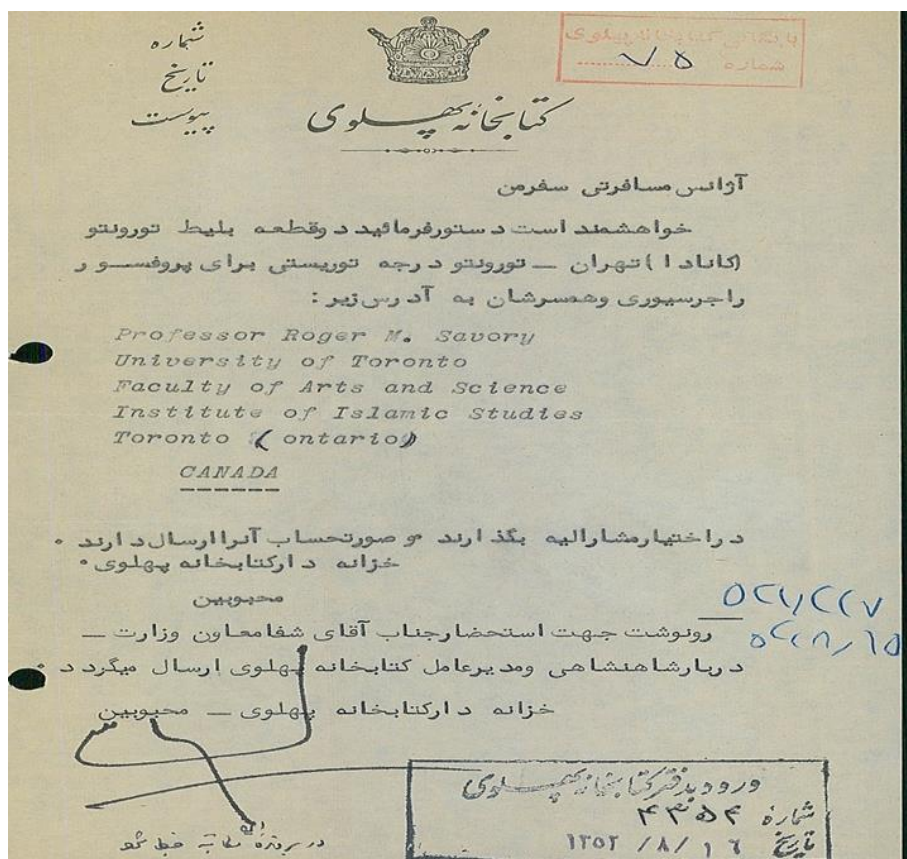 شماره
تاریخ
پیوست
بایگانی کتابخانه پهلوی
شماره ۷۵
کتابخانه پهلوی
آژانس مسافرتی سفرمن
خواهشمند است دستورفرمائید دوقطعه بلیط تورونتو
(کانادا) تهران ــ تورونتو درجه توریستی برای پروفسور
راجرسیوری وهمسرشان به آدرس زیر :
Professor Roger M. Savory
University of Toronto
Faculty of Arts and Science
Institute of Islamic Studies
Toronto (ontario)
CANADA
دراختیارمشارالیه بگذارند و صورتحساب آنرا ارسال دارند ۰
خزانه دارکتابخانه پهلوی ۰
محبوبین
رونوشت جهت استحضارجناب آقای شفامعاون وزارت ــ
دربارشاهنشاهی ومدیرعامل کتابخانه پهلوی ارسال میگردد ۰
خزانه دارکتابخانه پهلوی ــ محبوبین
ورود بدفتر کتابخانه پهلوی
شماره ۴۳۵۴
تاریخ ۱۳۵۲ /۸/ ۱۶